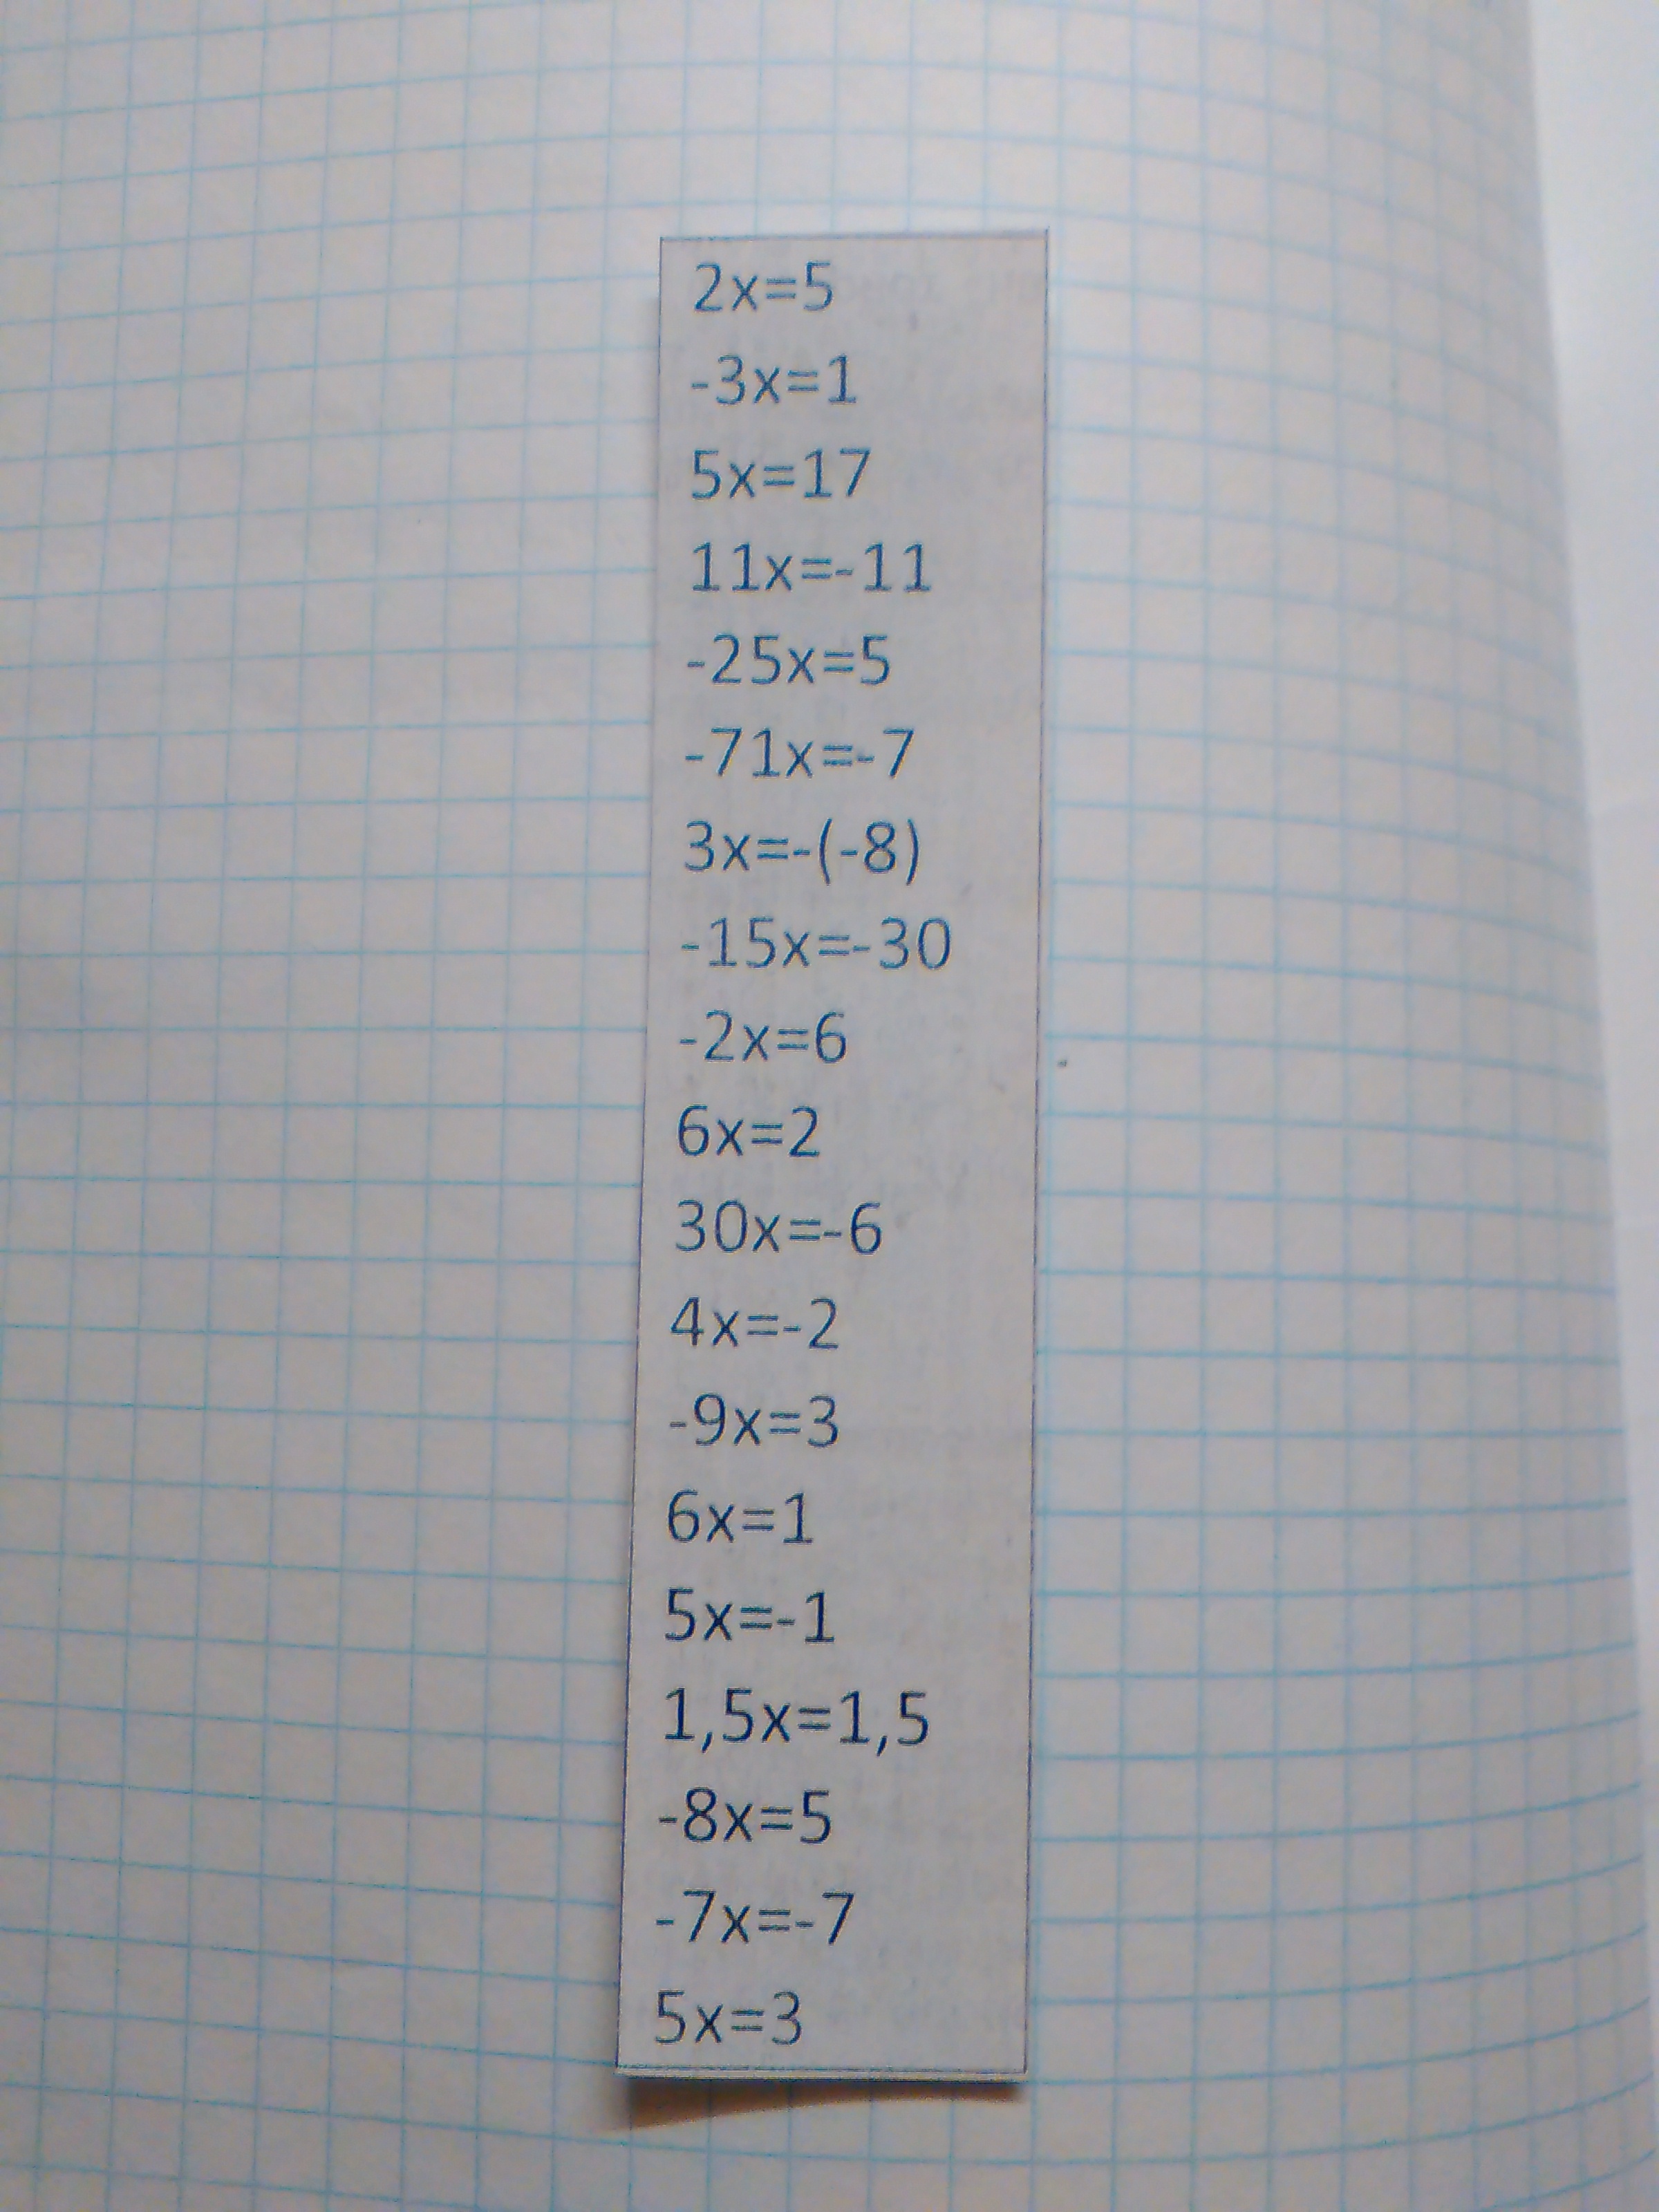 2x=5
-3x=1
5x=17
11x=-11
-25x=5
-71x=-7
3x=-(-8)
-15x=-30
-2x=6
6x=2
30x=-6
4x=-2
-9x=3
6x=1
5x=-1
1,5x=1,5
-8x=5
-7x=-7
5x=3